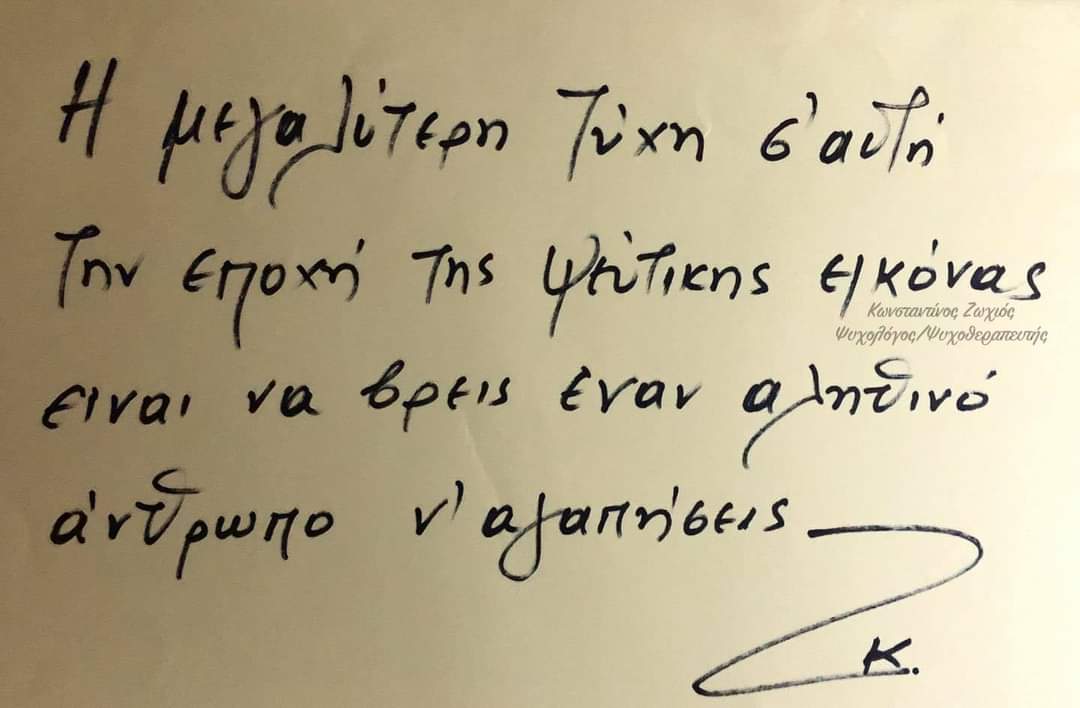 Η μεγαλύτερη τύχη σ'αυτή
την εποχή της ψεύτικης εικόνας
Κωνσταντίνος Ζωχιός
Ψυχολόγος/Ψυχοθεραπευτής
ειναι να βρεις έναν αληθινό
άνθρωπο ν'αγαπήσεις
Κ.